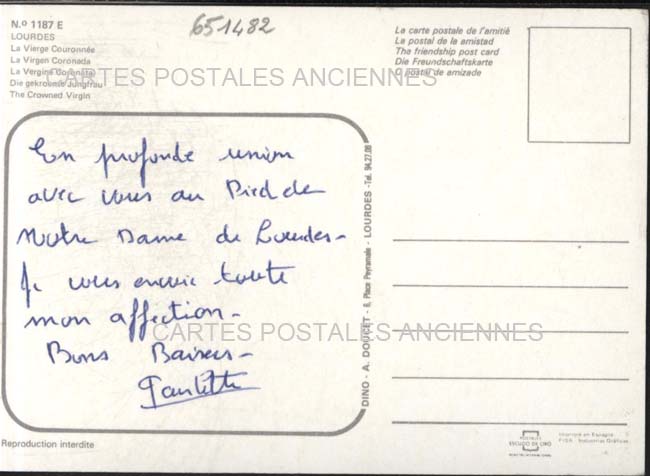 N.º 1187 E
LOURDES
La Vierge Couronnée
La Virgen Coronada
La Vergine Coronata
Die gekroente Jungfrau
The Crowned Virgin
651482
La carte postale de l'amitié
La postal de la amistad
The friendship post card
Die Freundschaftskarte
O postal de amizade
CARTES POSTALES ANCIENNES
En profonde union
avec vous au Pied de
Notre Dame de Lourdes-
Je vous envoie toute
mon affection-
Bons Baisers-
Paulette
CARTES POSTALES ANCIENNES
DINO - A. DOUCET - 8, Place Peyramale - LOURDES - Tel. 94.27.08
Reproduction interdite
POSTALES
ESCUDO DE ORO
Imprimé en Espagne
FISA Industrias Gráficas